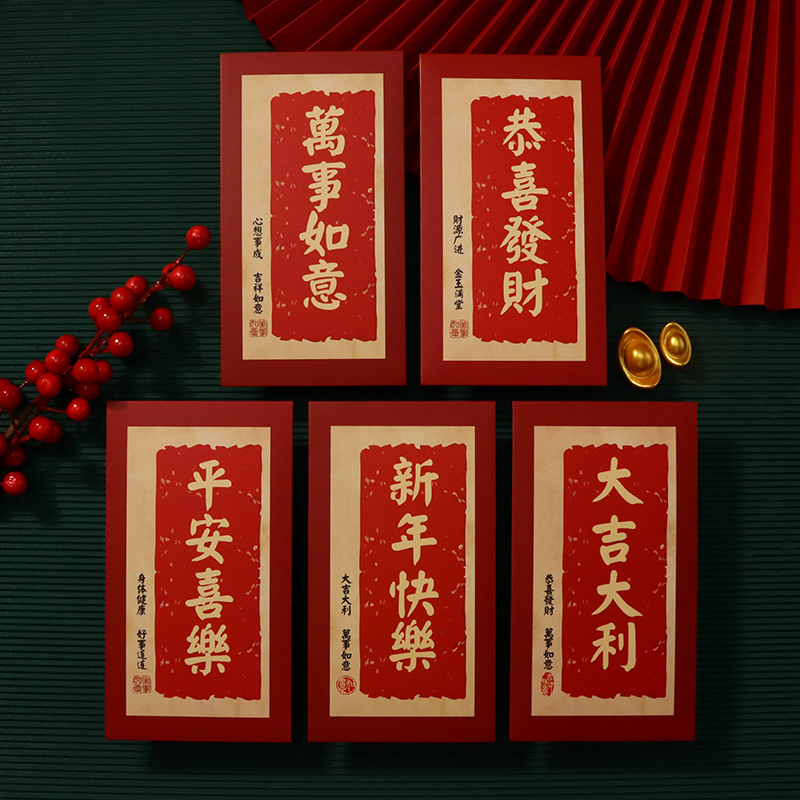 萬事如意
心想事成 吉祥如意
恭喜發財
財源广进 金玉满堂
平安喜樂
身体健康 好事连连
新年快樂
大吉大利 萬事如意
大吉大利
恭喜發財 萬事如意